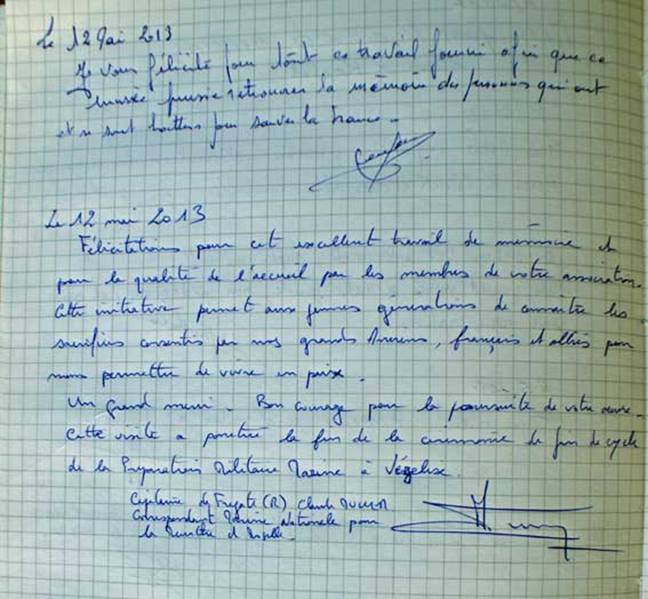 Le 12 Mai 2013
Je vous félicite pour tout ce travail fourni afin que ce
musée puisse retrouver la mémoire des personnes qui ont
et se sont battus pour sauver la France.
Le 12 mai 2013
Félicitations pour cet excellent travail de mémoire et
pour la qualité de l'accueil par les membres de votre association.
Cette initiative permet aux jeunes générations de connaître les
sacrifices consentis par nos grands Anciens, français et alliés pour
nous permettre de vivre en paix.
Un grand merci. Bon courage pour la poursuite de votre œuvre.
Cette visite a la fin de la cérémonie de fin de cycle
de la Préparation Militaire Marine à Vézelise.
Capitaine de Frégate (R) Claude
Correspondant Marine Nationale pour
la Meurthe et Moselle.